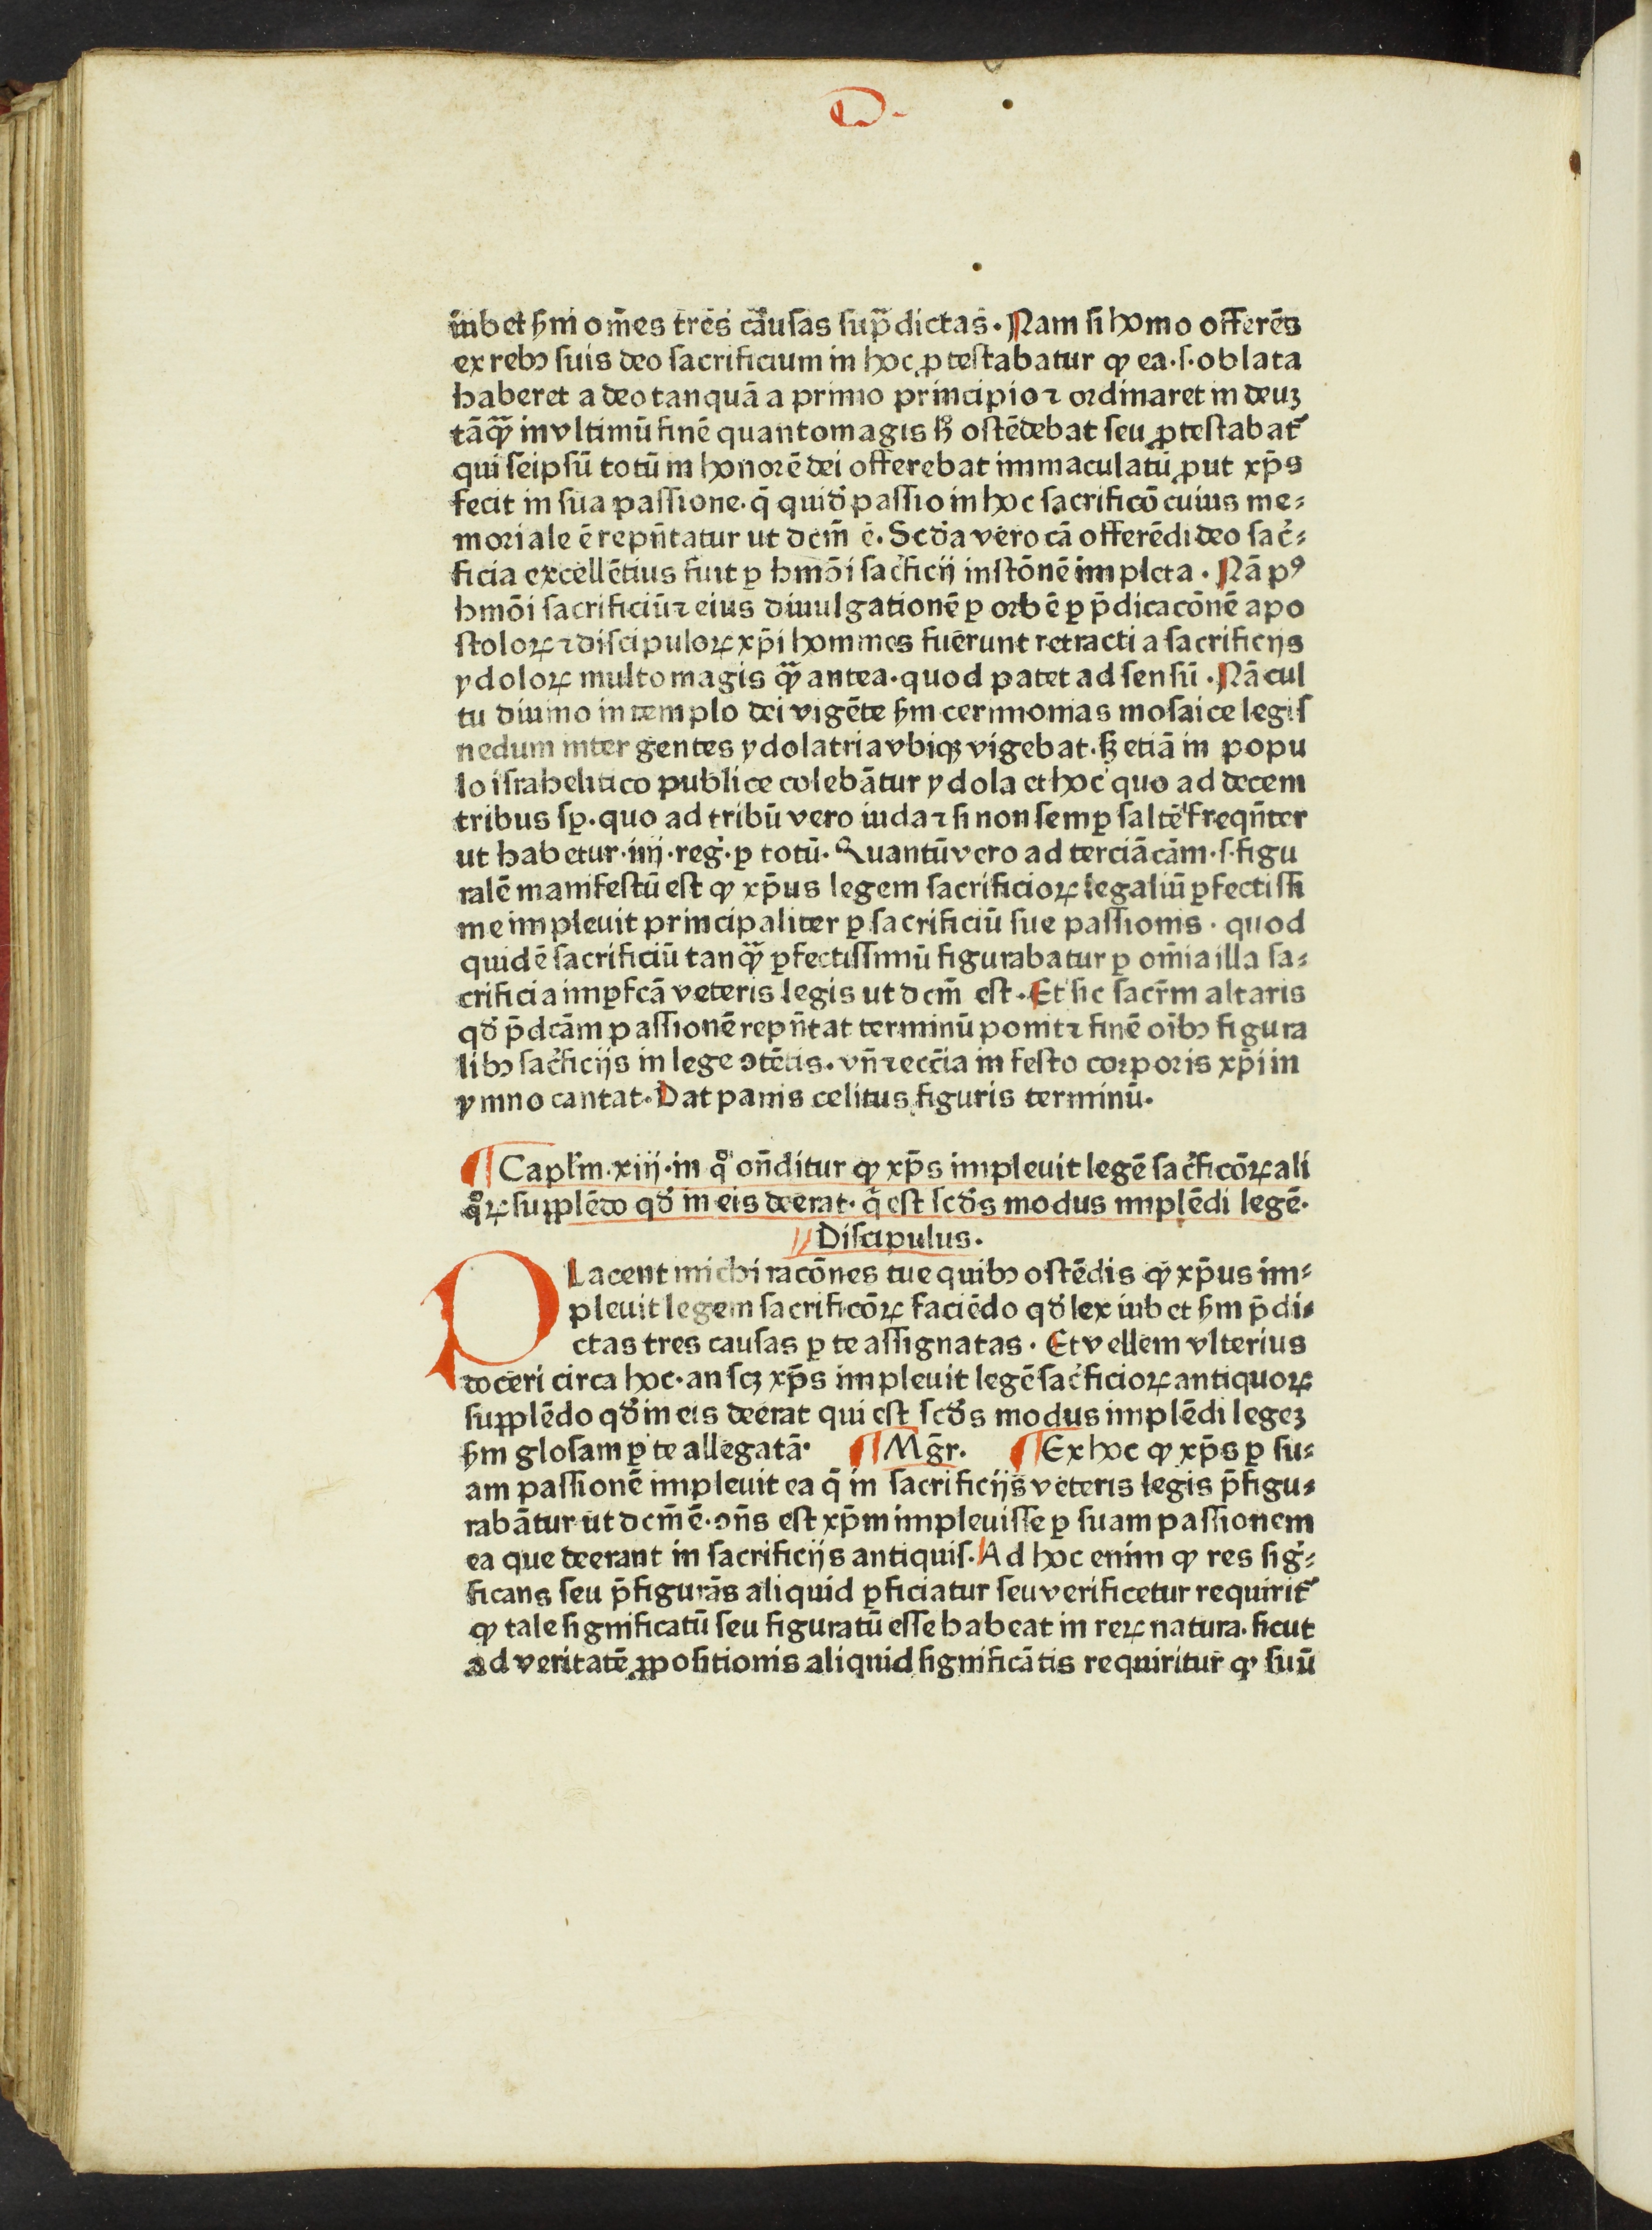 D.
iubet ẜm om̄es tres causas sup̄dictas. Nam si homo offerēs
ex rebꝰ suis deo sacrificium in hoc ꝓtestabatur ꝙ ea .s. oblata
haberet a deo tanquā a primo principio ⁊ ordinaret in deuꝫ
tāqᷓꝫ in vltimū finē quanto magis hᷓ ostēdebat seu ꝓtestabat᷑
qui seipsū totū in honorē dei offerebat immaculatū ꝓut xp̄s
fecit in sua passione. q̄ quidē passio in hoc sacrificō cuius me⸗
moriale ē rep̄ntatur ut dcm̄ ē. Scd̓a vero cā offerēdi deo sac̓⸗
ficia excellētius fuit ꝑ hmōi sac̓ficij instōnē impleta. Nā pꝰ
hmōi sacrificiū ⁊ eius diuulgationē ꝑ orbē ꝑ p̄dicacōnē apo
stoloꝝ ⁊ discipuloꝝ xp̄i homines fuerunt retracti a sacrificijs
ydoloꝝ multo magis qᷓꝫ antea. quod patet ad sensū. Nā cul
tu diuino in templo dei vigēte ẜm cerimonias mosaice legis
nedum inter gentes ydolatria vbiqꝫ vigebat. sꝫ etiā in popu
lo israhelitico publice colebātur ydola et hoc quo ad decem
tribus sꝑ. quo ad tribū vero iuda ⁊ si non semꝑ saltē freqn̄ter
ut habetur .iiij. reg̓. ꝑ totū. Quantū vero ad terciā cām .s. figu
ralē manifestū est ꝙ xp̄us legem sacrificioꝝ legaliū ꝑfectissi
me impleuit principaliter ꝑ sacrificiū sue passionis. quod
quidē sacrificiū tanqᷓꝫ ꝑfectissimū figurabatur ꝑ om̄ia illa sa⸗
crificia imꝑfcā veteris legis ut dcm̄ est. Et sic sacr̄m altaris
qd̓ p̄dcām passionē rep̄ntat terminū ponit ⁊ finē oībꝰ figura
libꝰ sac̓ficijs in lege ꝯtētis. vn̄ ⁊ ecc̄ia in festo corporis xp̄i in
ymno cantat. Dat panis celitus figuris terminū.
¶ Capl̓m .xiij. in qͦ on̄ditur ꝙ xp̄s impleuit legē sac̓ficōꝝ ali
qͦꝝ supplēdo qd̓ in eis deerat. q̓ est scd̓s modus implēdi legē.
Discipulus.
Placent michi racōnes tue quibꝰ ostēdis ꝙ xp̄us im⸗
pleuit legem sacrificōꝝ faciēdo qd̓ lex iubet ẜm p̄di⸗
ctas tres causas ꝑ te assignatas. Et vellem vlterius
doceri circa hoc. an scꝫ xp̄s impleuit legē sac̓ficioꝝ antiquoꝝ
supplēdo qd̓ in eis deerat qui est scd̓s modus implēdi legeꝫ
ẜm glosam ꝑ te allegatā. ¶ Mgr̄. ¶ Ex hoc ꝙ xp̄s ꝑ su⸗
am passionē impleuit ea q̄ in sacrificijs veteris legis p̄figu⸗
rabātur ut dcm̄ ē. ꝯn̄s est xp̄m impleuisse ꝑ suam passionem
ea que deerant in sacrificijs antiquis. Ad hoc enim ꝙ res sig̓⸗
ficans seu p̄figurās aliquid ꝑficiatur seu verificetur requirit᷑
ꝙ tale significatū seu figuratū esse habeat in reꝝ natura. sicut
ad veritatē ꝓpositionis aliquid significātis requiritur ꝙ suū